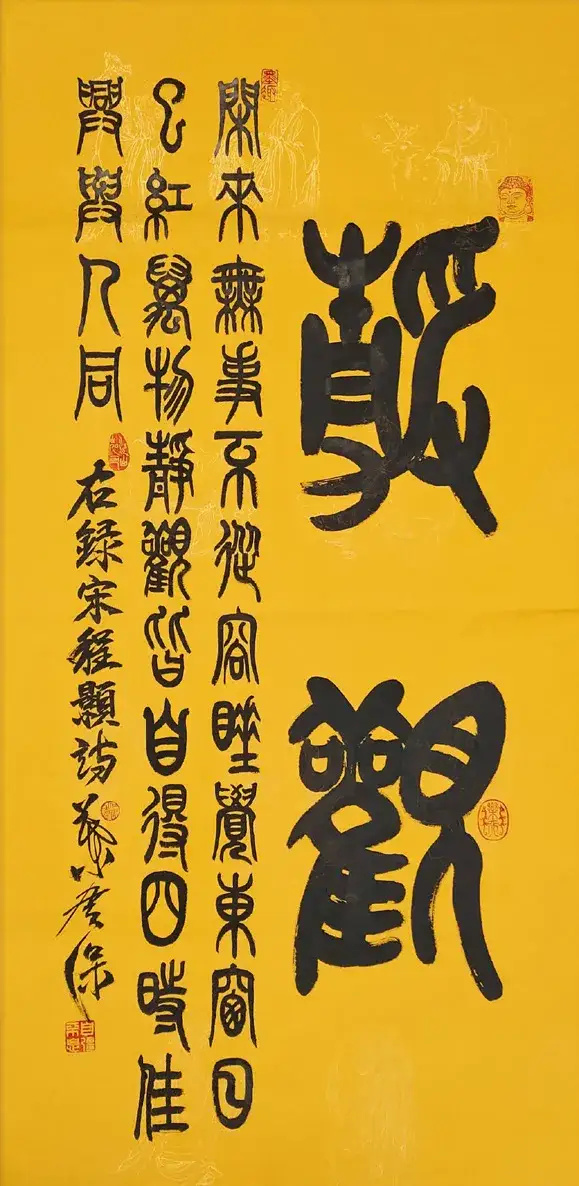 靜觀
閑來無事不從容睡覺東窗日
已紅萬物靜觀皆自得四時佳
興與人同
右錄宋程顥詩